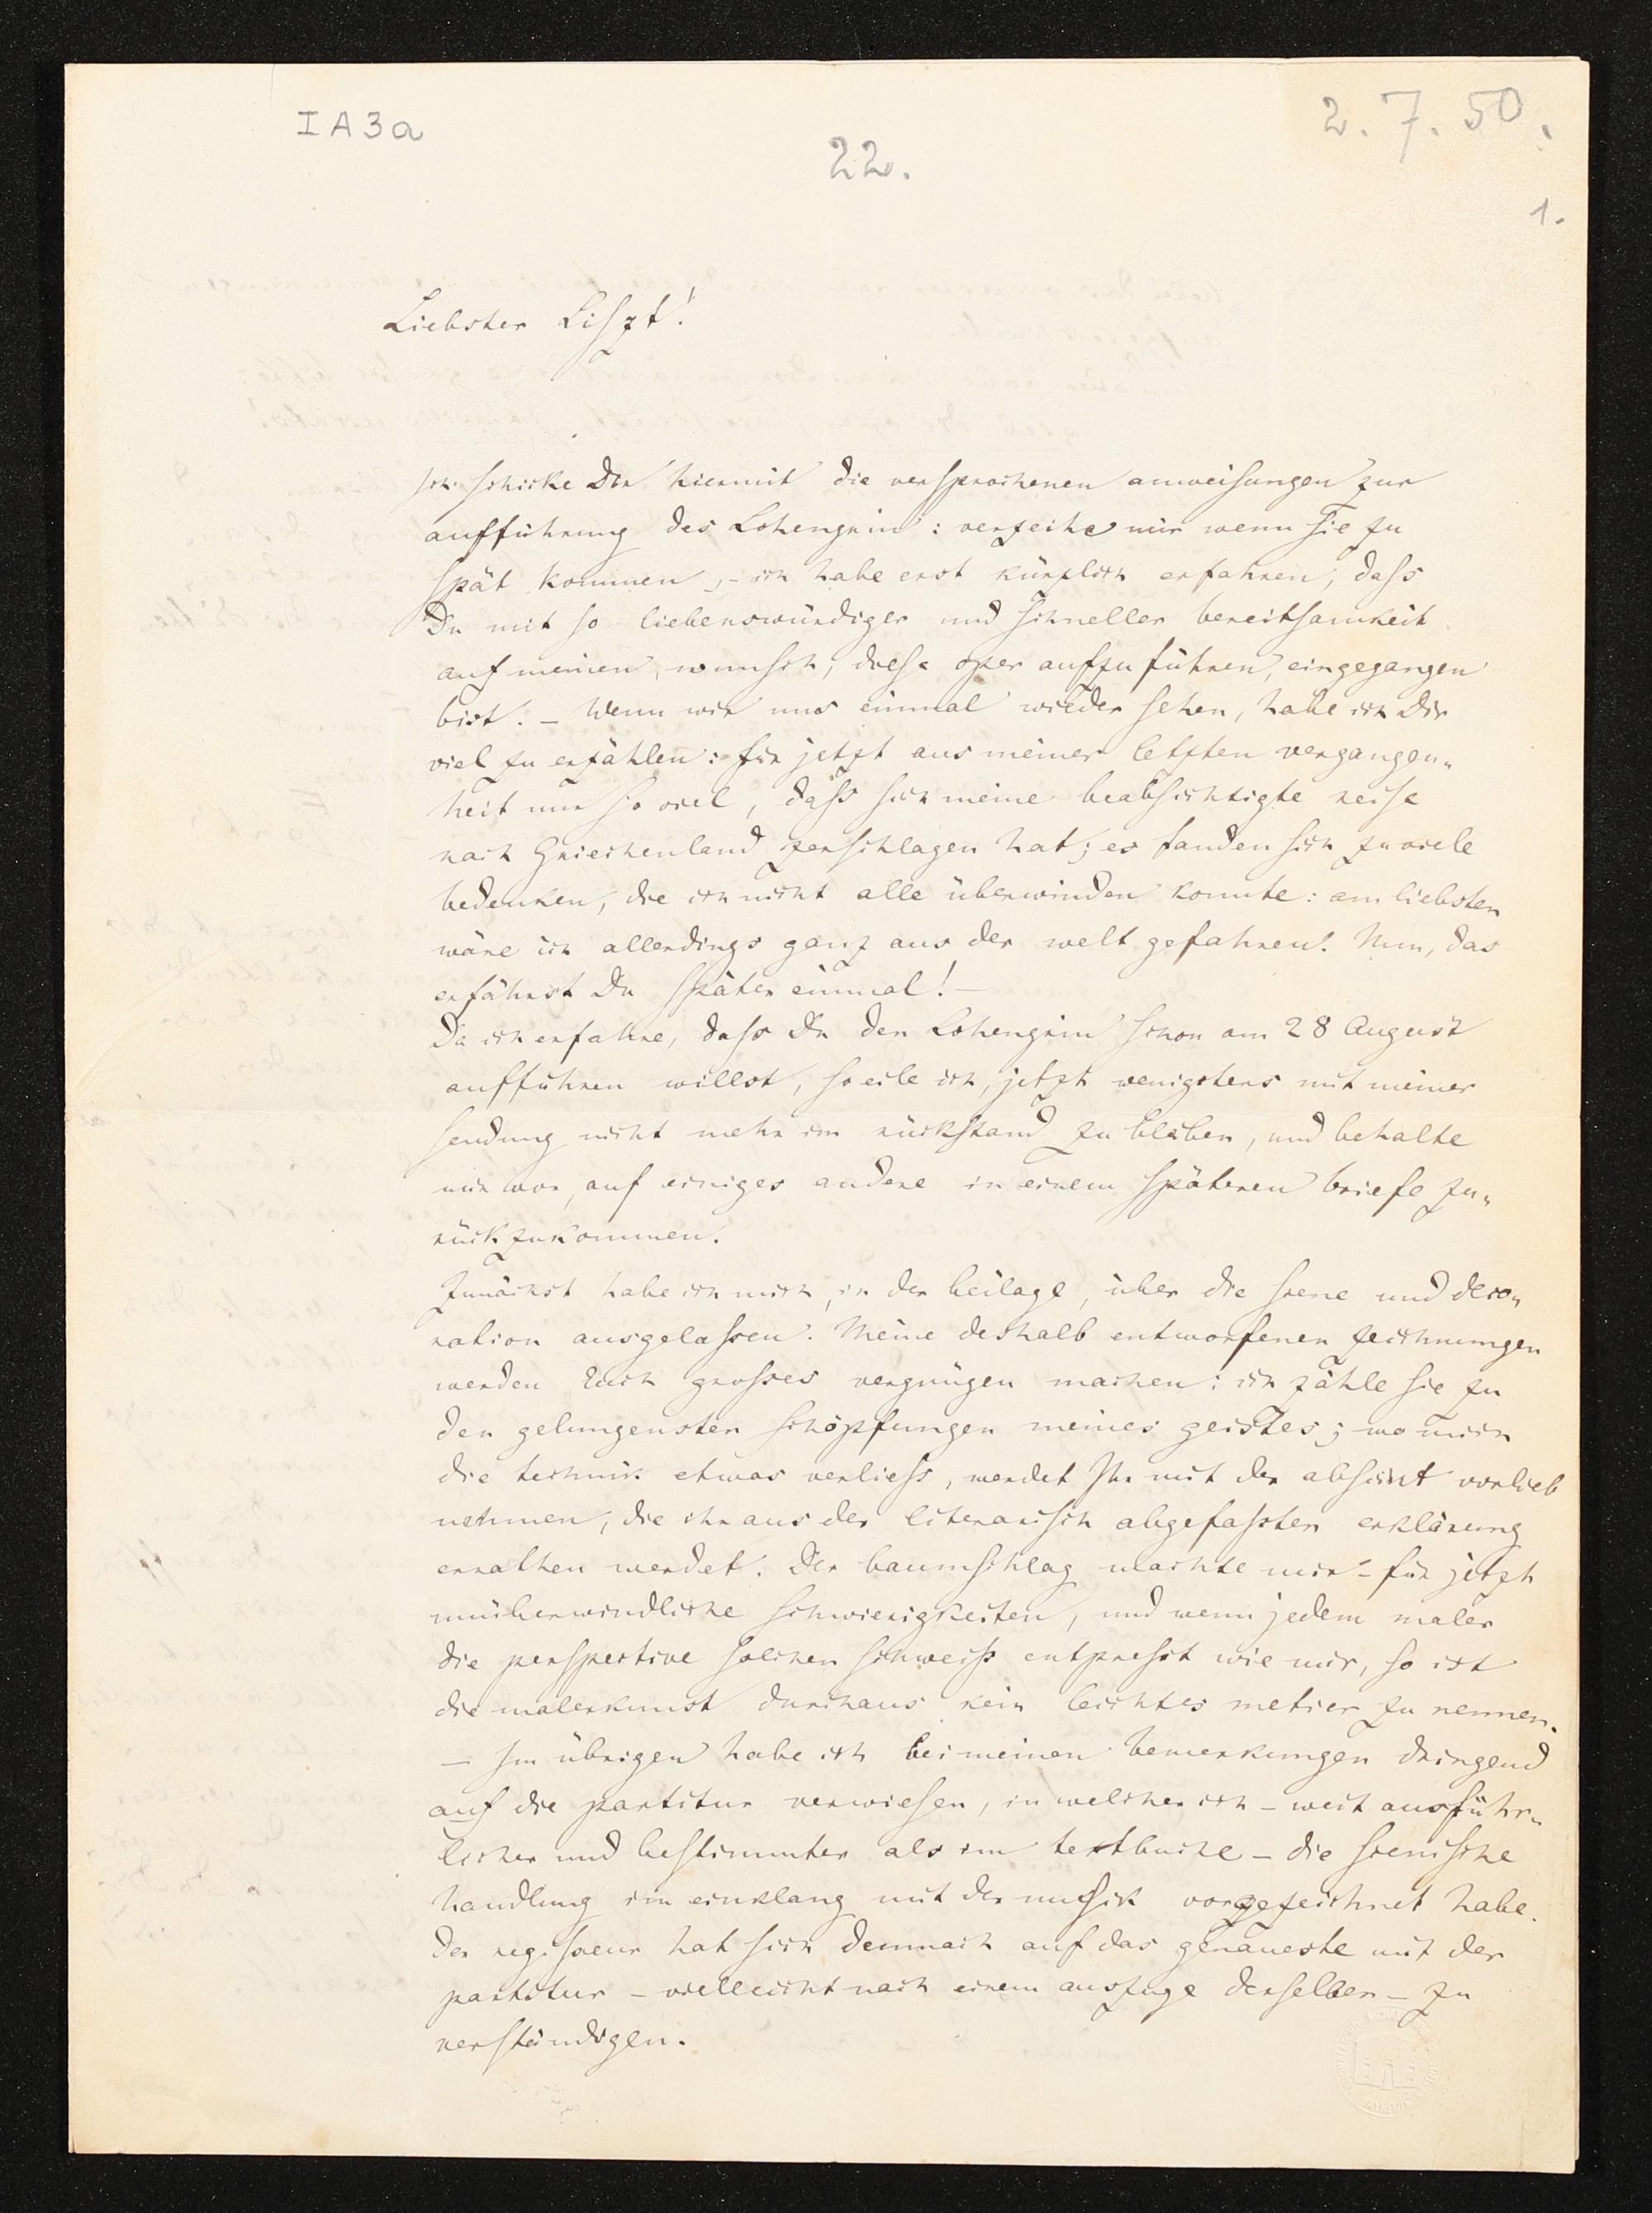 I A 3 a
2. 7. 50.
22.
1.
Liebster Liszt!
Ich schicke Dir hiermit die versprochenen anweisungen zur
aufführung des Lohengrin: verzeihe mir wenn sie zu
spät kommen, – ich habe erst kürzlich erfahren, dass
Du mit so liebenswürdiger und schneller bereitsamkeit
auf meinen wunsch, diese oper aufzuführen, eingegangen
bist. – Wenn wir uns einmal wieder sehen, habe ich Dir
viel zu erzählen: für jetzt aus meiner letzten vergangen„
heit nur so viel, dass sich meine beabsichtigte reise
nach Griechenland zerschlagen hat; es fanden sich zu viele
bedenken, die ich nicht alle überwinden konnte: am liebsten
wäre ich allerdings ganz aus der welt gefahren! Nun, das
erfährst Du später einmal! –
Da ich erfahre, dass Du den Lohengrin schon am 28 August
aufführen willst, so eile ich, jetzt wenigstens mit meiner
sendung nicht mehr im rückstand zu bleiben, und behalte
mir vor, auf einiges andere in einem späteren briefe zu„
rückzukommen.
Zunächst habe ich mich, in der beilage, über die scene und deco„
ration ausgelassen. Meine deshalb entworfenen zeichnungen
werden Euch grosses vergnügen machen: ich zähle sie zu
den gelungensten schöpfungen meines geistes; wo mich
die technik etwas verliess, werdet Ihr mit der absicht vorlieb
nehmen, die ihr aus der literarisch abgefassten erklärung
errathen werdet. Der baumschlag machte mir – für jetzt
unüberwindliche schwierigkeiten, und wenn jedem maler
die perspective solchen schweiss entpresst wie mir, so ist
die malerkunst durchaus kein leichtes metier zu nennen.
– Im übrigen habe ich bei meinen bemerkungen dringend
auf die partitur verwiesen, in welcher ich – weit ausführ„
licher und bestimmter als im textbuche – die scenische
handlung im einklang mit der musik vorgezeichnet habe.
Der regisseur hat sich demnach auf das genaueste mit der
partitur – vielleicht nach einem auszuge derselben – zu
verständigen.